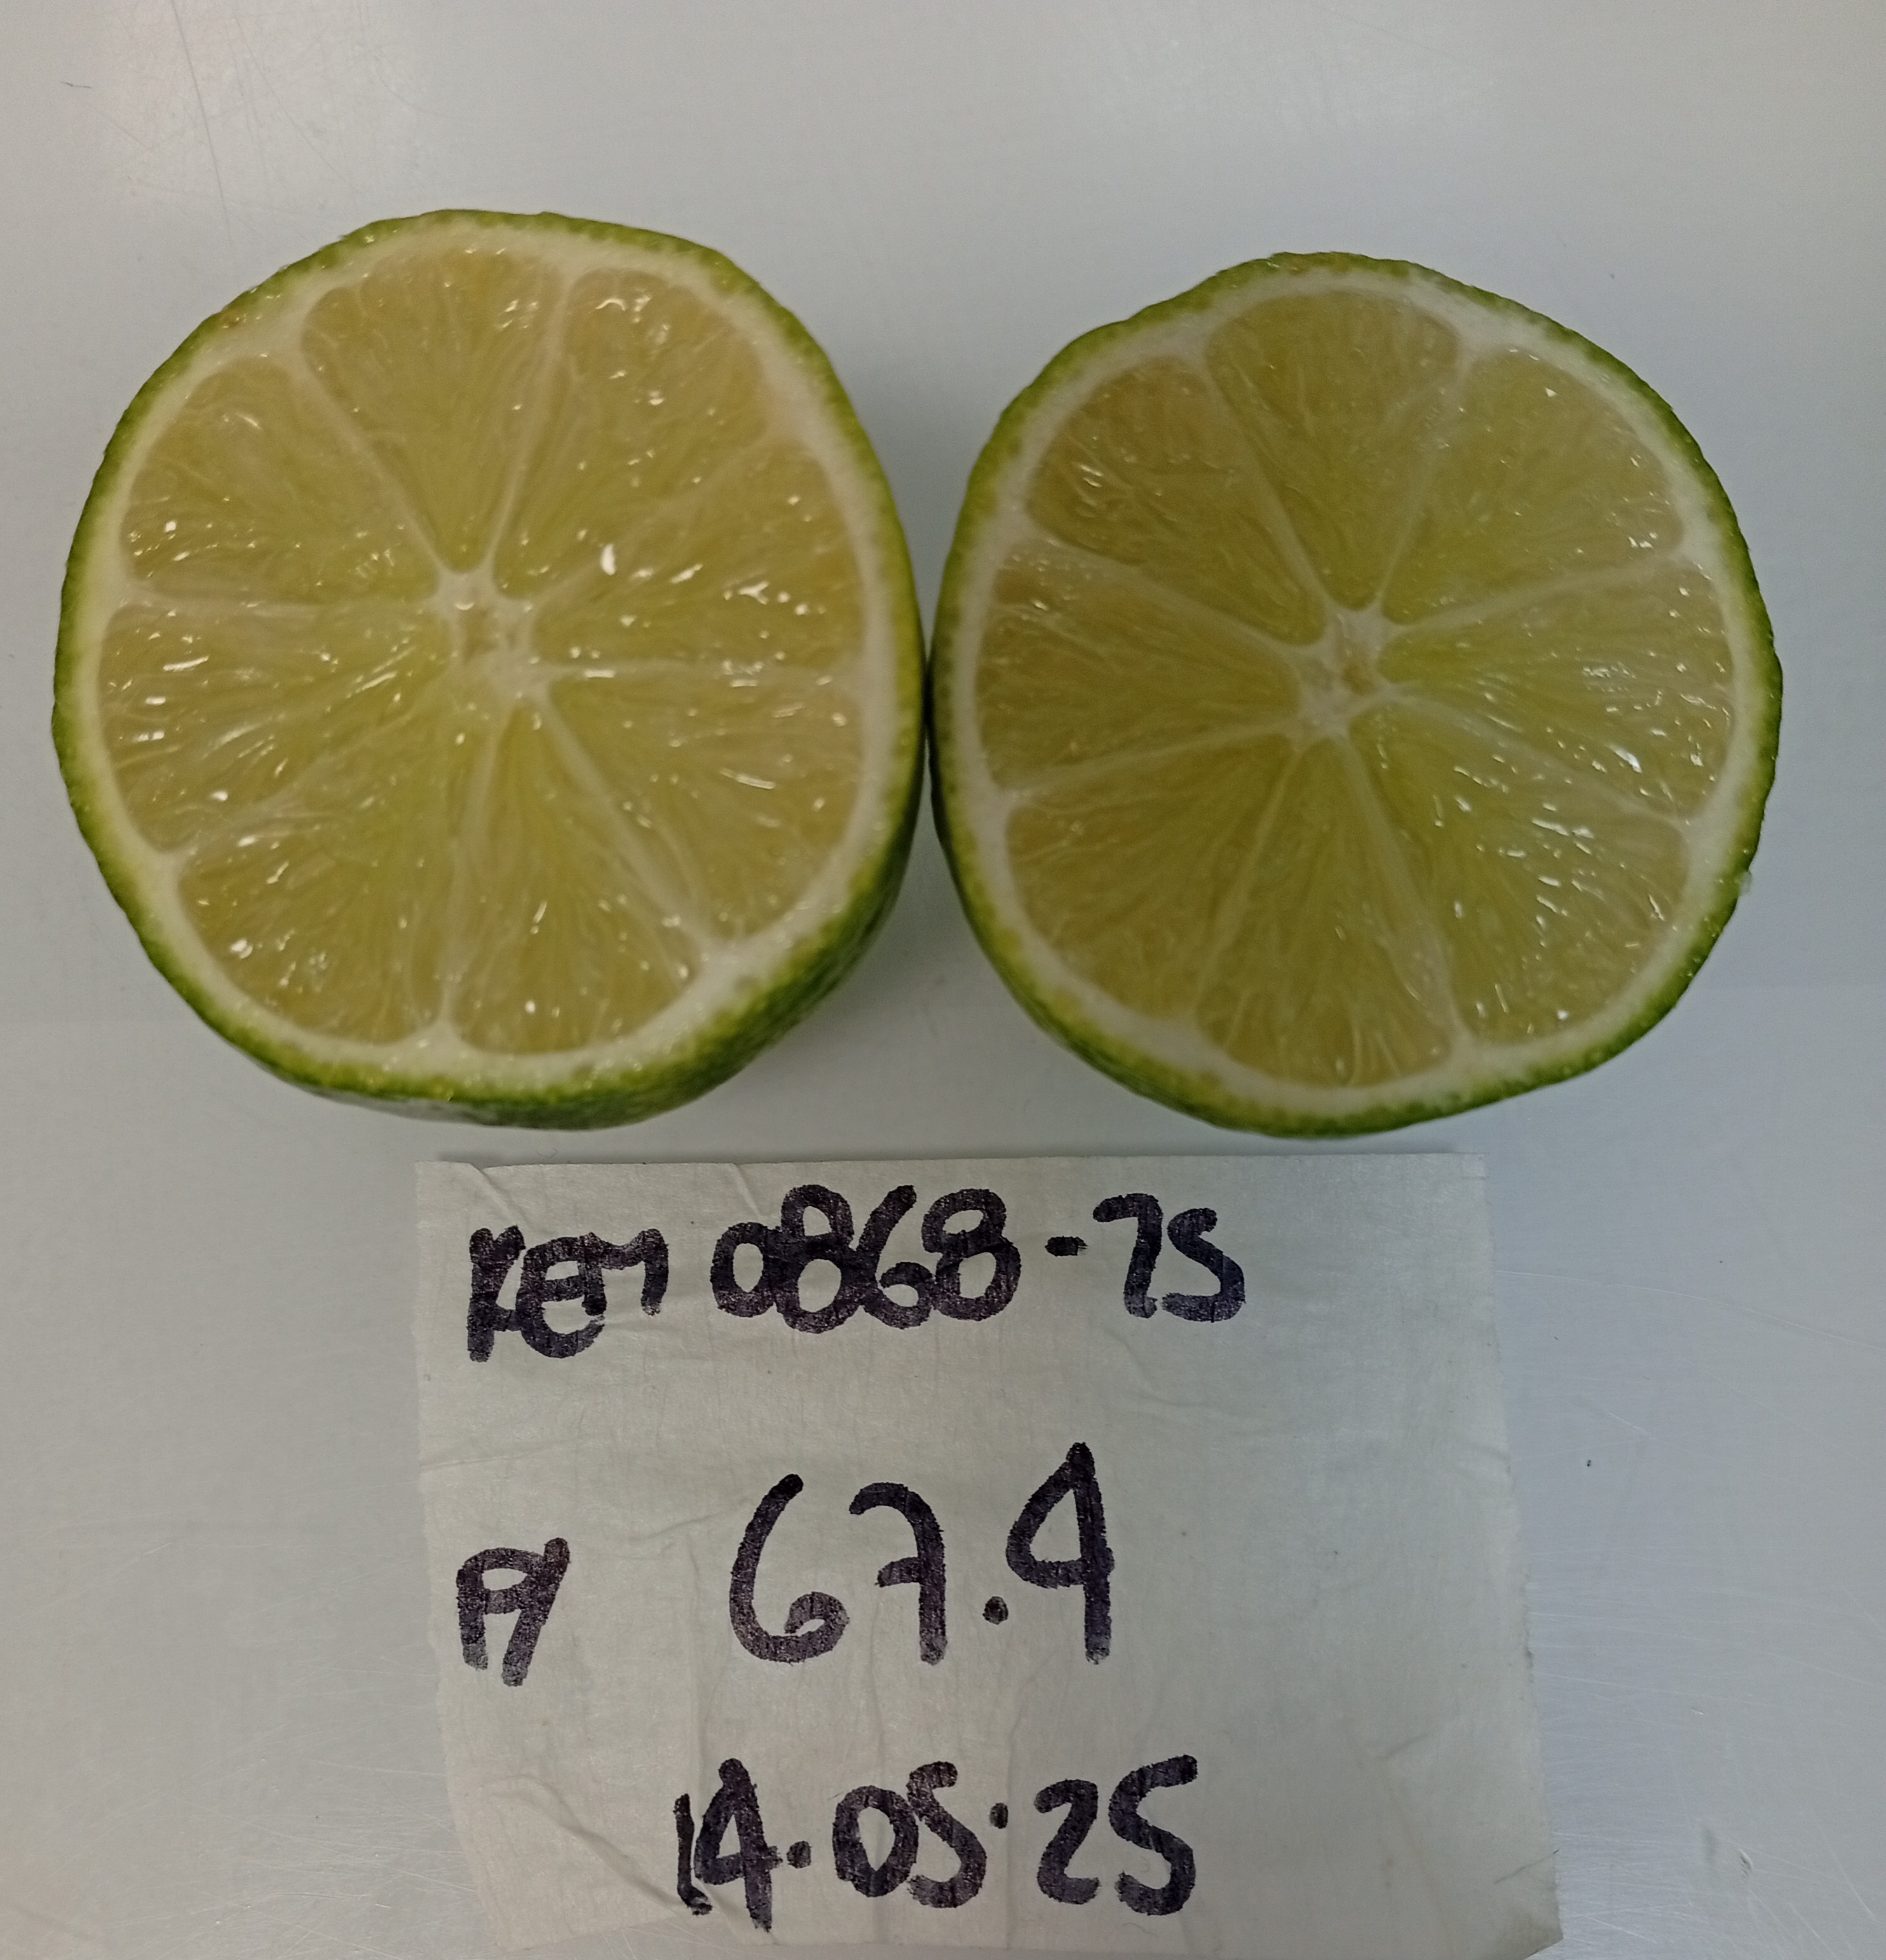 REM 0868-75
A 67.4
14.05.25